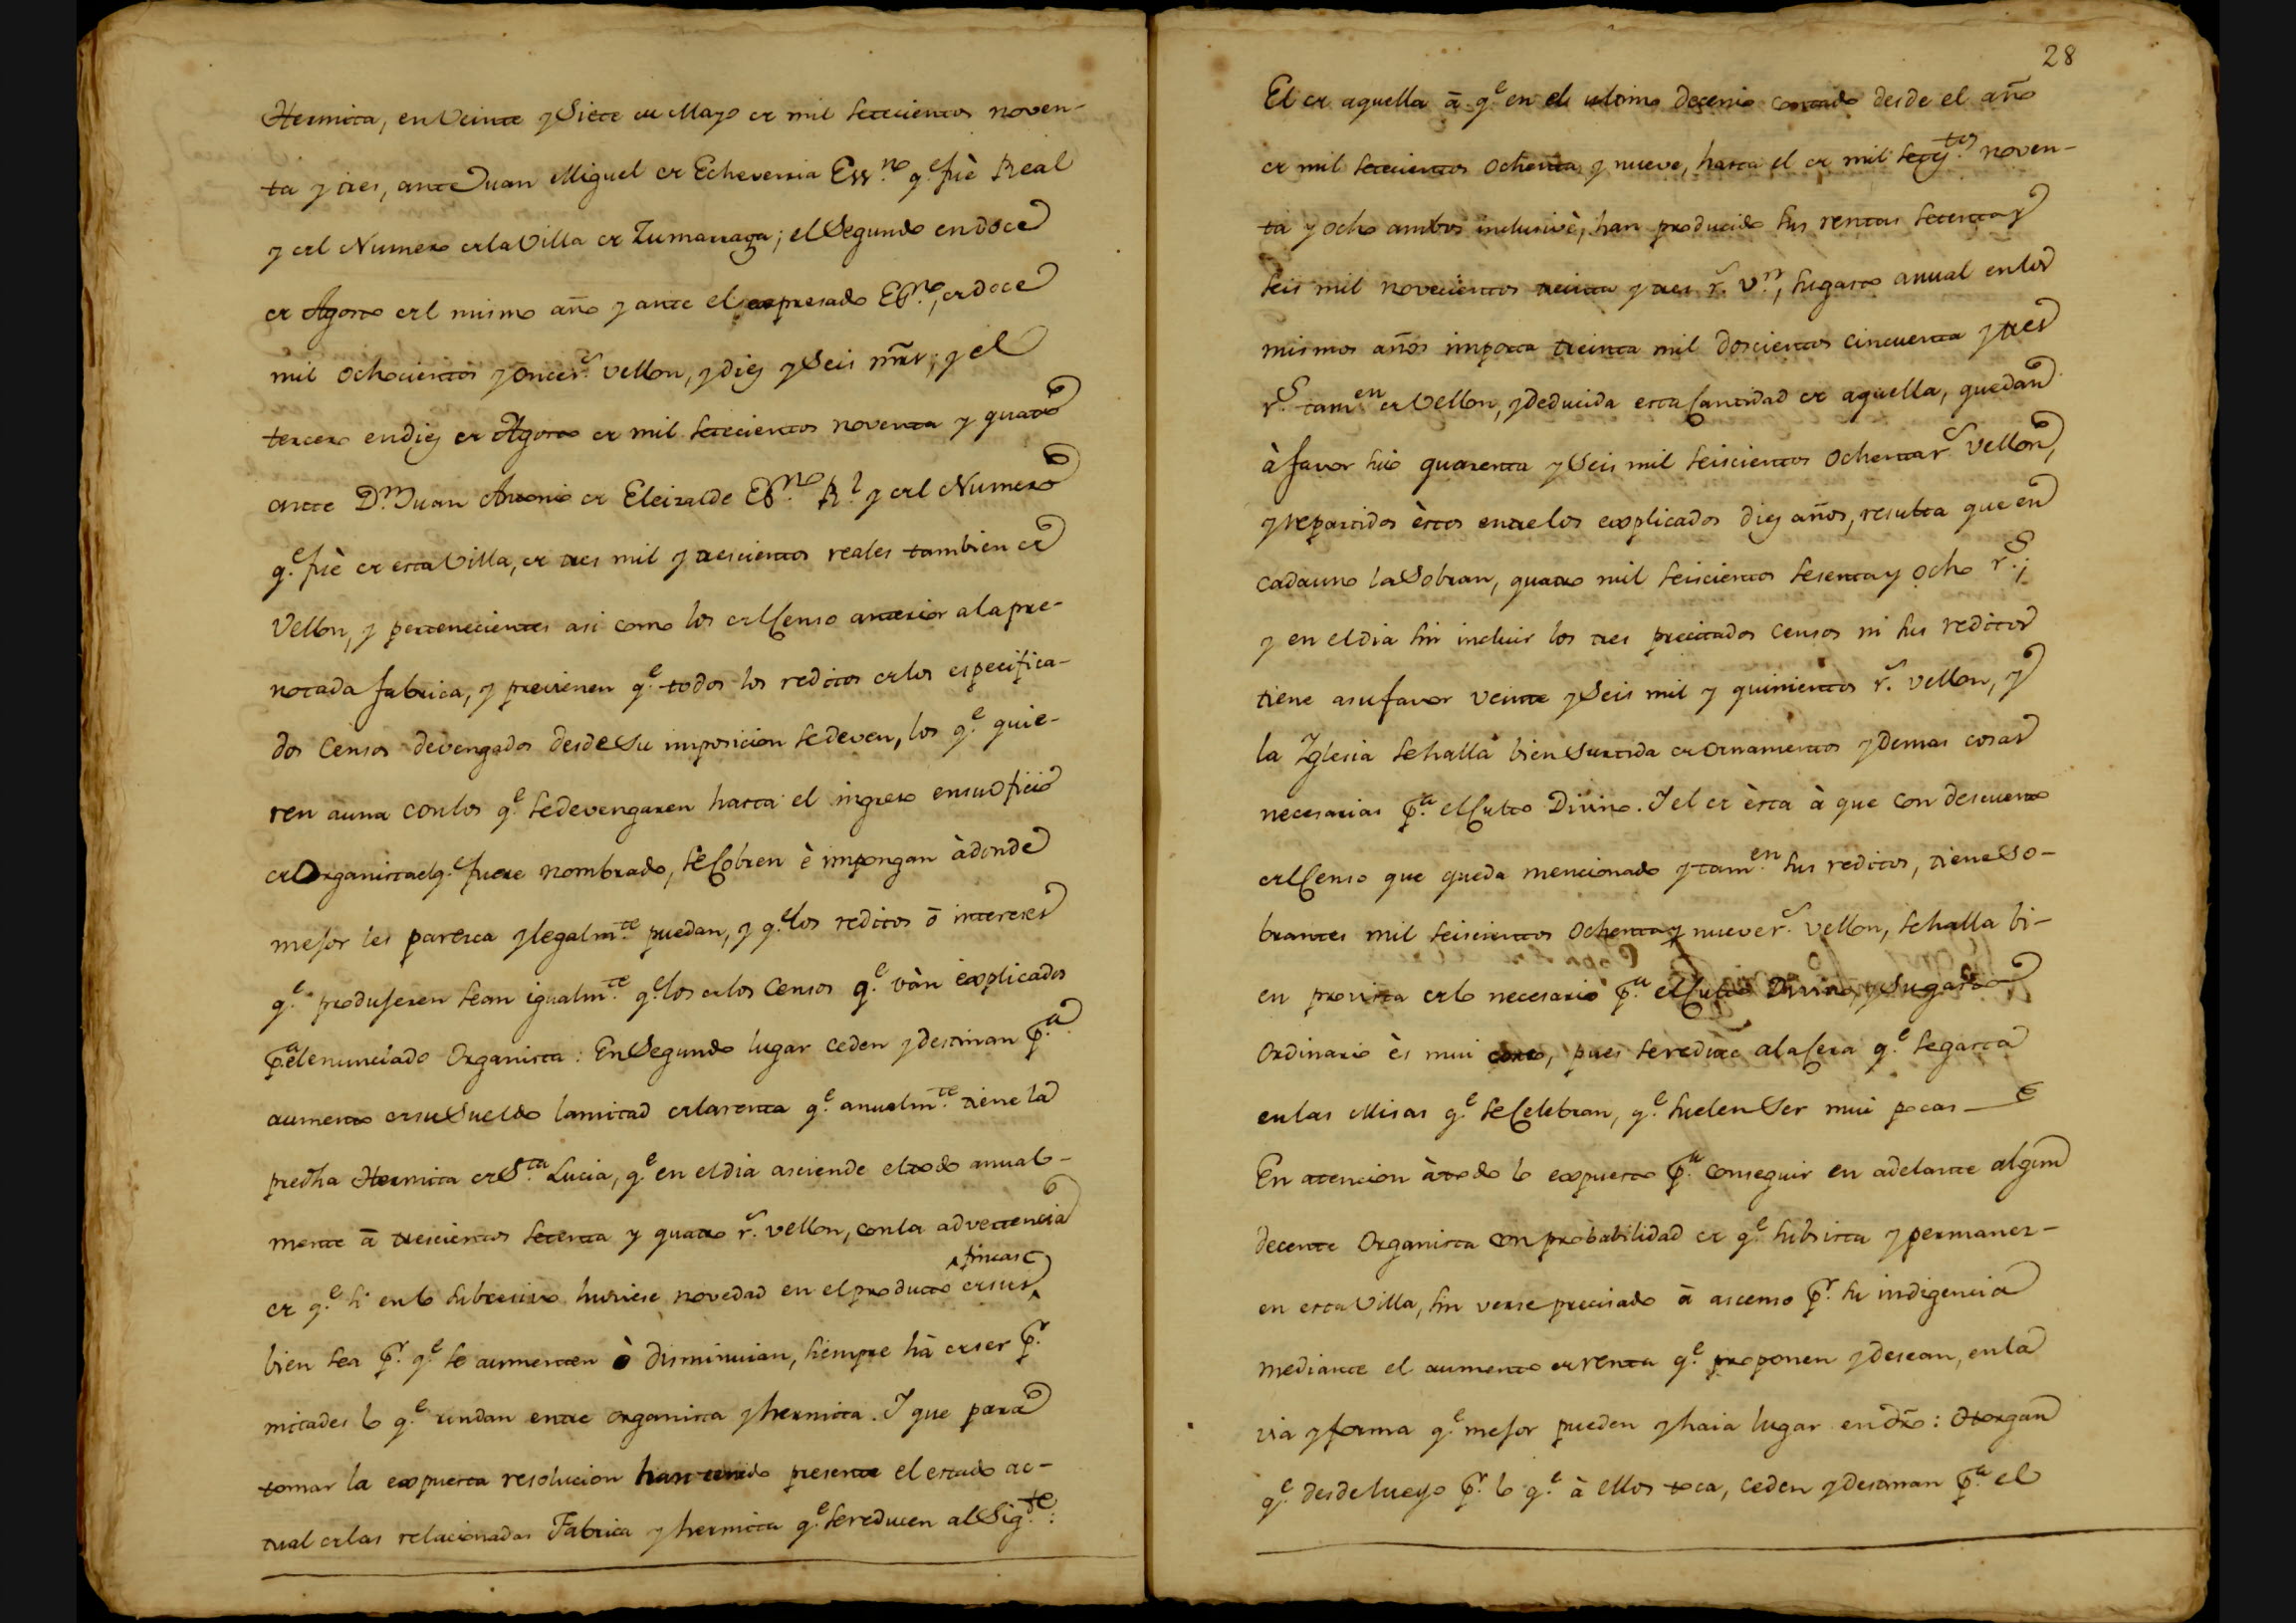 Hermita, en Veinte y Siete de Mayo de mil setecientos noven-
ta y tres, ante Juan Miguel de Echeverria Ess.no q.e fuè Real
y del Numero de la Villa de Zumarraga; el Segundo en doce
de Agosto del mismo año y ante el expresado Es.no, de doce
mil ochocientos y once r.s vellon, y diez y Seis mrs; y el
tercero en diez de Agosto de mil setecientos noventa y quatro
ante D.n Juan Antonio de Eleizalde Es.no R.l y del Numero
q.e fuè de esta Villa, de tres mil y trescientos reales tambien de
Vellon, y pertenecientes asi como los del Censo anterior a la pre-
notada fabrica, y previenen q.e todos los reditos de los especifica-
dos Censos devengados desde Su imposicion se deven, los q.e quie-
ren auna con los q.e se devengaren hasta el ingreso en su Oficio
de Organista el q.e fuere nombrado, se Cobren è impongan à donde
mejor les paresca y legalm.te puedan, y q.e los reditos ō intereses
q.e produjeren sean igualm.te q.e los de los Censos q.e vàn explicados
p.a el enunciado Organista: En Segundo lugar ceden y destinan p.a
aumento de su Sueldo la mitad de la renta q.e anualm.te tiene la
predha Hermita de S.ta Lucia, q.e en el dia asciende el todo anual-
mente ā trescientos setenta y quatro r.s vellon, con la advertencia
de q.e si en lo subcesivo huviese novedad en el producto de sus ^fincas
bien sea p.r q.e se aumenten ò disminuian, siempre hà de ser p.r
mitades lo q.e rindan entre organista y hermita. Y que para
tomar la expuesta resolucion han tenido presente el estado ac-
tual de las relacionadas Fabrica y hermita q.e se reducen al Sig.te:
28
El de aquella ā q.e en el ultimo decenio contado desde el año
de mil setecientos ochenta y nueve, hasta el de mil setez.tos noven-
ta y ocho ambos inclusivè, han producido sus rentas setenta y
seis mil novecientos treinta y tres r.s v.n, su gasto anual en los
mismos años importa treinta mil doscientos cincuenta y tres
r.s tam.en de Vellon, y deducida esta Cantidad de aquella, quedan
à favor suio quarenta y Seis mil seiscientos ochenta r.s vellon,
y repartidos èstos entre los explicados diez años, resulta que en
cada uno la Sobran, quatro mil seiscientos sesenta y ocho r.s;
y en el dia sin incluir los tres precitados censos ni sus reditos
tiene a su favor veinte y Seis mil y quinientos r.s vellon, y
la Yglesia se halla bien Surtida de Ornamentos y demas cosas
necesarias p.a el Culto Divino. Y el de èsta à que con descuento
del Censo que queda mencionado y tam.en sus reditos, tiene So-
brantes mil seiscientos ochenta y nueve r.s vellon, se halla bi-
en provista de lo necesario p.a el Culto Divino, y Su gasto
Ordinario ès mui corto, pues se reduce a la Cera q.e se gasta
en las Misas q.e se Celebran, q.e suelen Ser mui pocas
En atencion à todo lo expuesto p.a conseguir en adelante algun
decente Organista con probabilidad de q.e subsista y permanez-
en esta Villa, sin verse precisado à ascenso p.r su indigencia
mediante el aumento de renta q.e proponen y desean, en la
via y forma q.e mejor pueden y haia lugar en dro: Otorgan
q.e desde luego p.r lo q.e à ellos toca, ceden y destinan p.a el